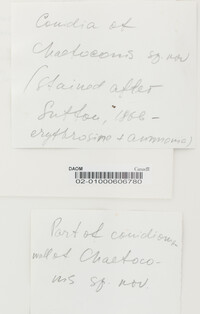 Conidia of
Chaetoconis sp. nov
(stained after
Sutton, 1968 -
erythrosine & ammonia)
DAOM
Canada
02-01000606780
Part of conidioma
wall of Chaetoco-
nis sp. nov